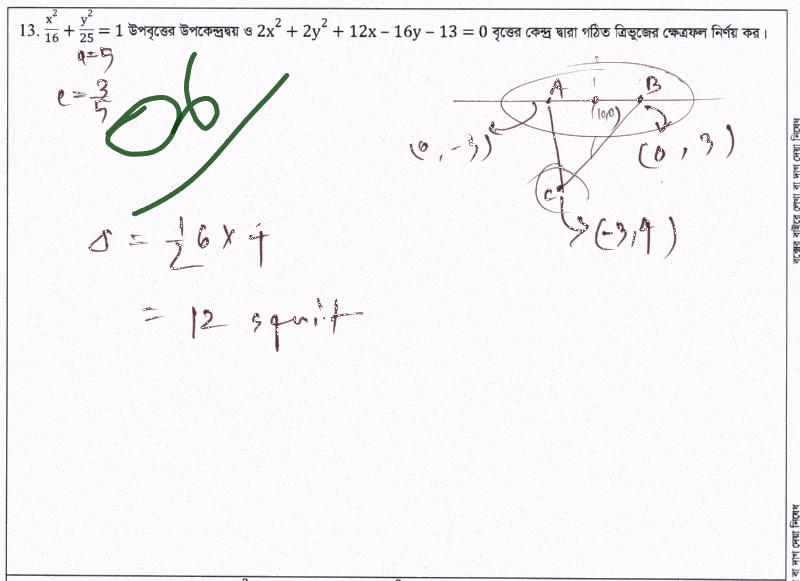 13. x²/16 + y²/25 = 1 উপবৃত্তের উপকেন্দ্রদ্বয় ও 2x² + 2y² + 12x – 16y – 13 = 0 বৃত্তের কেন্দ্র দ্বারা গঠিত ত্রিভুজের ক্ষেত্রফল নির্ণয় কর।
a=5
e = 3/5
06
A B
(0,0)
(0, -3) (0, 3)
C
(-3,4)
Δ = 1/2 6 × 4
= 12 sq unit
বক্সের বাইরে লেখা বা দাগ দেয়া নিষেধ
বা দাগ দেয়া নিষেধ